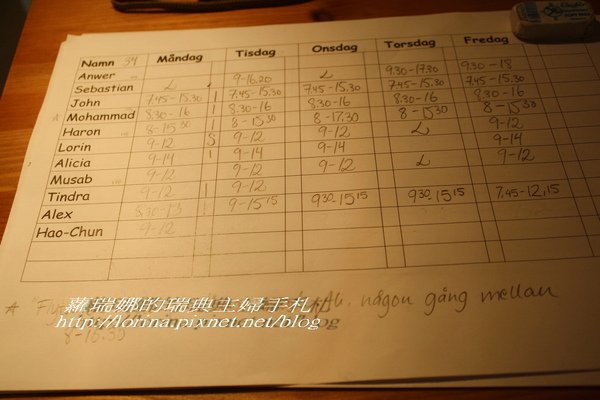 Namn 34 Måndag Tisdag Onsdag Torsdag Fredag
Anwer
Sebastian L 9-16.20 L 9.30-17.30 9.30-18
John 7.45-15.30 7.45-15.30 7.45-15.30 7.45-15.30 7.45-15.30
Mohammad 8.30-16 8.30-16 8.30-16 8.30-16 8.30-16
Haron 8-15 30 8-15 30 8-17.30 8-15 30 8-15 30
Lorin 9-12 9-12 9-12 L 9-12
Alicia 9-14 9-14 9-14 9-14
Musab 9-12 9-12 9-12 L 9-12
Tindra 9-12 9-12
Alex 8.30-13 9-15 15 9 30-15 15 9 30-15 15 7.45-12,15
Hao-Chun 9-12
någon gång mellan
蘿瑞娜的瑞典主婦手札
http://lorina.pixnet.net/blog